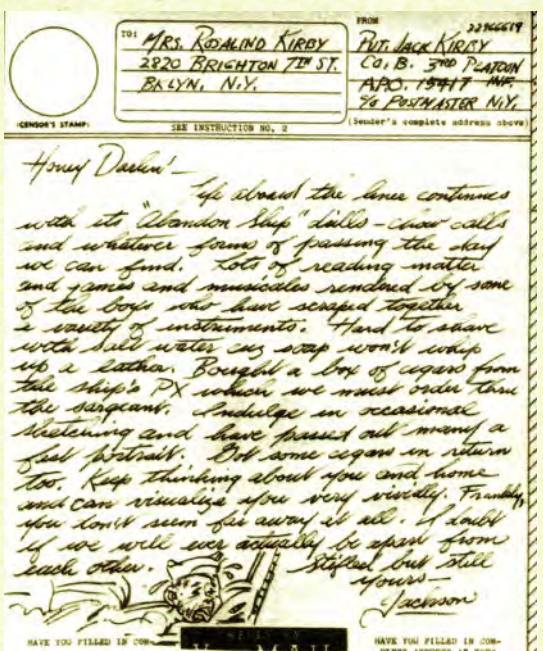 TO: MRS. ROSALIND KIRBY
2820 BRIGHTON 7TH ST.
BKLYN, N.Y.
SEE INSTRUCTION NO. 2
FROM 22966619
PVT. JACK KIRBY
CO. B. 3RD PLATOON
A.P.O. 15417 INF.
C/O POSTMASTER N.Y.
(Sender's complete address above)
(CENSOR'S STAMP)
Honey Darlin' —
Life aboard the liner continues
with its "Abandon Ship" drills – chow calls
and whatever forms of passing the day
we can find. Lots of reading matter
and games and musicales rendered by some
of the boys who have scraped together
a variety of instruments. Hard to shave
with salt water cuz soap won't whip
up a lather. Bought a box of cigars from
the ship's PX which we must order thru
the sargeant. Indulge in occasional
sketching and have passed out many a
fast portrait. Got some cigars in return
too. Keep thinking about you and home
and can visualize you very vividly. Frankly,
you don't seem far away at all. I doubt
if we will ever actually be apart from
each other.
Stifled but still
yours —
Jackson
HAVE YOU FILLED IN COM-
V···— MAIL
HAVE YOU FILLED IN COM-